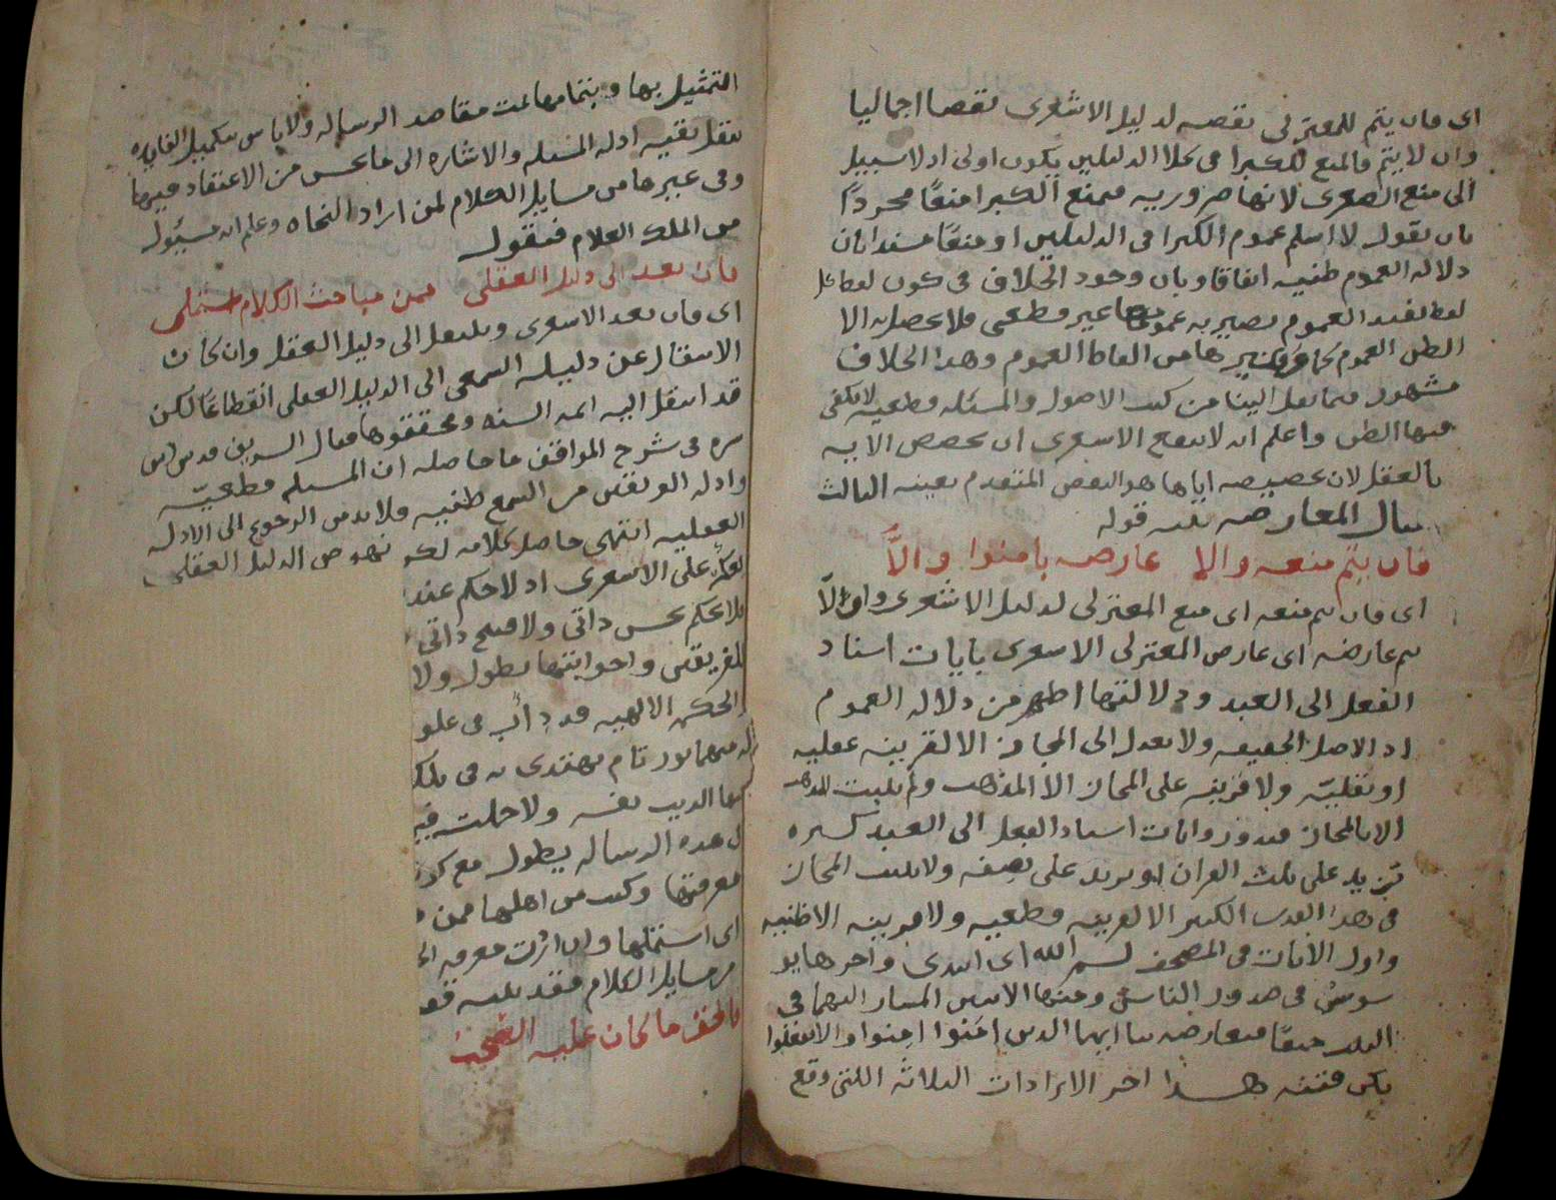 اى فان يتم للمعتزلى نقضه لدليل الاشعرى نقضا اجماليا
وان لا يتم فالمنع للكبرا فى كلا الدليلين يكون اولى اذ لا سبيل
الى منع الصغرى لانها ضروريه فيمنع الكبرا منعًا مجردًا
بان يقول لا اسلم عموم الكبرا فى الدليلين او منعًا مسندا بان
دلاله العموم ظنيه اتفاقا وبان وجود الخلاف فى كون لفظا كل
لفظا يفيد العموم يصير به عمومها غير قطعى فلا يحصل به الا
الظن العموم من الفاظ العموم وهذا الخلاف
مشهور فيما نقل الينا من كتب الاصول والمسئله قطعيه لا يكفى
فيها الظن واعلم انه لا ينفع الاشعرى ان يخصص الايه
بالعقل لان تخصيصه اياها هو النقض المتقدم بعينه الثالث
المعارضه قوله
فان يتم منعه والا عارضه بامنوا والاَّ
اى فان يتم منعه اى منع المعتزلى لدليل الاشعرى وان لاَّ
يتم عارضه اى عارض المعتزلى الاشعرى بايات اسناد
الفعل الى العبد ودلالتها اظهر من دلاله العموم
اذ الاصل الحقيقه ولا يعدل الى المجاز الا لقرينه عقليه
او نقليّه ولا قرينه على المجاز الا المذهب ولم يثبت المذهب
الا بالمجاز فيدور وايات اسناد الفعل الى العبد كثيره
تزيد على ثلث القران او يزيد على نصفه ولا يثبت المجاز
فى هذا القدر الكثير الا لقرينه قطعيه ولا قرينه الا ظنيه
واول الايات فى المصحف بسم الله اى ابتدى واخرها يو
سوس فى صدور الناس ومنها الايتين المشار اليهما فى
البيت معًا معارضه يا ايها الذين امنوا امنوا والا تفعلوا
تكن فتنه هذا اخر الايرادات الثلاثه اللتى وقع
التمثيل بها وبتمامها تمت مقاصد الرساله ولا باس بتكميل الفايده
بنقل بقيه ادله المسئله والاشاره الى ما يحسن من الاعتقاد فيها
وفى غيرها من مسايل الكلام لمن اراد النجاه وعلم انه مسئول
من الملك العلام فنقول
فان يعد الى دليل العقلى فمن مباحث الكلام
اى فان يعد الاشعرى وينتقل الى دليل العقل وان كان
الانتقال عن دليله السمعى الى الدليل العقلى انقطاعًا لكن
قد انتقل اليه ائمه السنه ومحققوها فقال الشريف قدس الله
سره فى شرح المواقف ما حاصله ان المسئله قطعيّه
وادله الفريقين من السمع ظنيه فلا بد من الرجوع الى الادله
العقليه انتهى حاصل كلامه نهوض الدليل العقلى
على الاشعرى اذ لا حكم عند
فلا يحكم بحسن ذاتى ولا قبح ذاتى
للفريقين واجوبتها يطول ولا
الحكم الالهيه قد داب فى علو
فيهما نور تام يهتدى به فى تلك
نفسه ولا
هذه الرساله يطول مع
معرفتها وكتب من اهلها فمن
اى استملها وان اثرت معرفه
من مسايل الكلام فقد
بالحق ما كان عليه